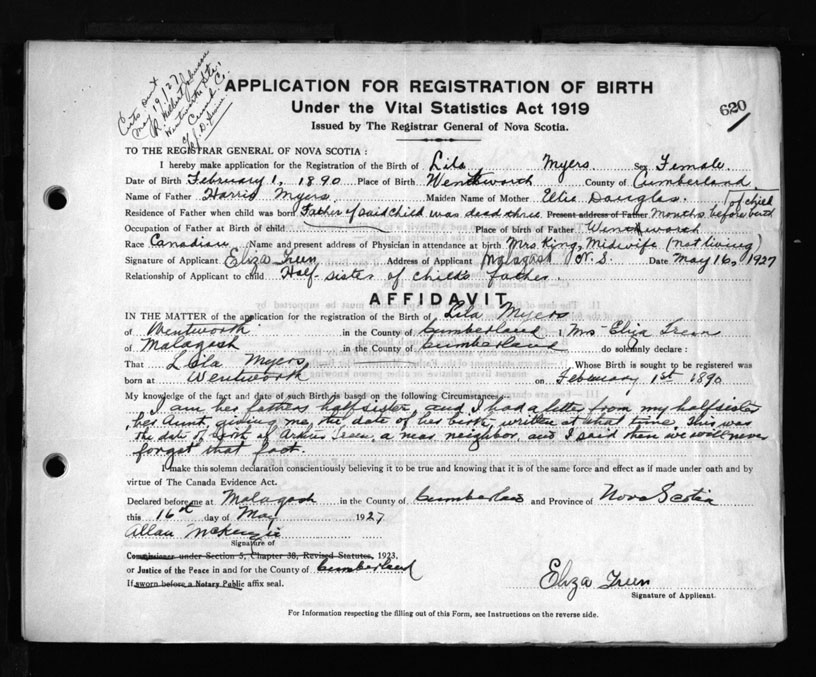 Certs sent
May 19/27
Wentworth Stn.,
Cumb. C.
APPLICATION FOR REGISTRATION OF BIRTH
620
Under the Vital Statistics Act 1919
Issued by The Registrar General of Nova Scotia.
TO THE REGISTRAR GENERAL OF NOVA SCOTIA :
I hereby make application for the Registration of the Birth of Lila Myers Sex Female
Date of Birth February 1, 1890 Place of Birth Wentworth County of Cumberland
Name of Father Harris Myers Maiden Name of Mother Elis Douglas. of child
Residence of Father when child was born Father of said child was dead three Present address of Father Months before birth
Occupation of Father at Birth of child Place of birth of Father Wentworth
Race Canadian Name and present address of Physician in attendance at birth Mrs King, Midwife (not living)
Signature of Applicant Eliza Treen Address of Applicant Malagash N. S. Date May 16, 1927
Relationship of Applicant to child Half sister of child's father.
AFFIDAVIT
IN THE MATTER of the application for the registration of the Birth of Lila Myers
of Wentworth in the County of Cumberland I, Mrs Eliza Treen
of Malagash in the County of Cumberland do solemnly declare :
That Lila Myers Whose Birth is sought to be registered was
born at Wentworth on February 1st 1890
My knowledge of the fact and date of such Birth is based on the following Circumstances
I am her fathers half sister, and I had a letter from my half sister
her Aunt, giving me the date of her birth, written at that time. This was
the date of birth of Treen, a near neighbor, and I said then we will never
forget that fact.
I make this solemn declaration conscientiously believing it to be true and knowing that it is of the same force and effect as if made under oath and by
virtue of The Canada Evidence Act.
Declared before me at Malagash in the County of Cumberland and Province of Nova Scotia
this 16th day of May 1927
Allan McKenzie
Signature of
Commissioner under Section 5, Chapter 38, Revised Statutes, 1923.
or Justice of the Peace in and for the County of Cumberland
If sworn before a Notary Public affix seal.
Eliza Treen
Signature of Applicant.
For Information respecting the filling out of this Form, see Instructions on the reverse side.